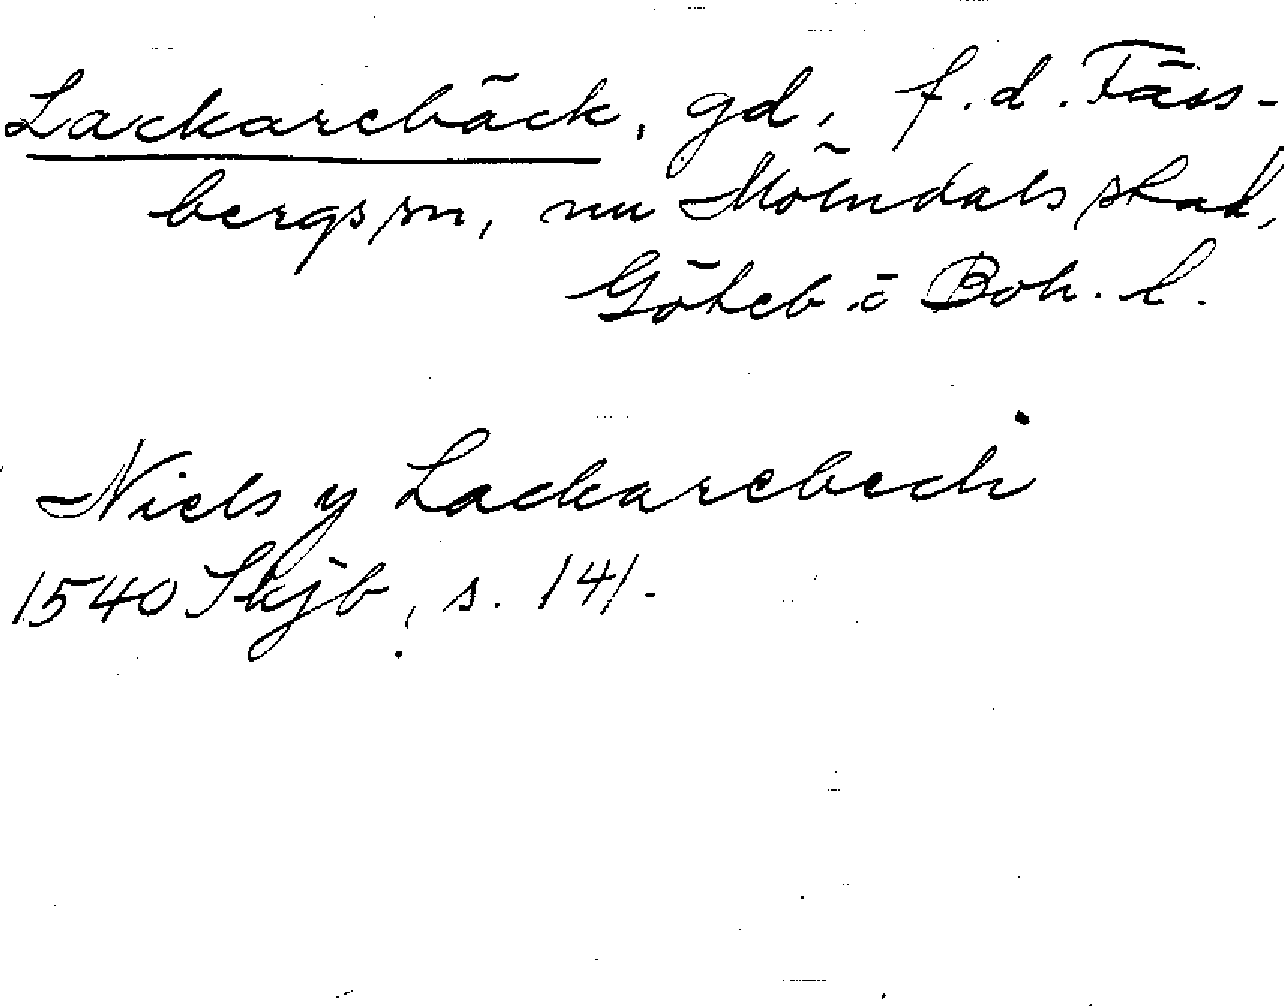 Lackarebäck, gd, f.d. Fäss-
bergs sn, nu Mölndals stad,
Göteb o Boh. l.
Niels y Lackarebeck
1540 Skjb, s. 141.